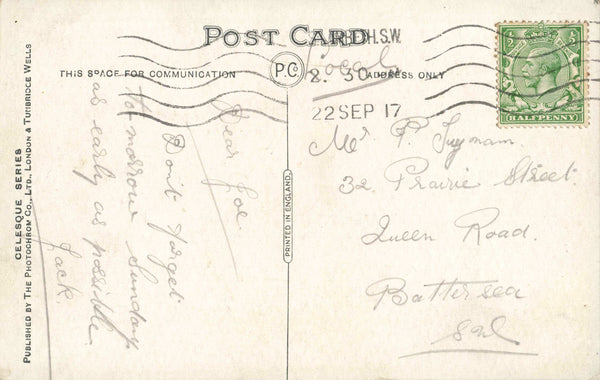 POST CARD
THIS SPACE FOR COMMUNICATION
ADDRESS ONLY
P.C.
H.S.W.
2. 30
22 SEP 17
HALFPENNY
Local
Dear Joe
Dont forget
to-morrow Sunday
as early as possible
Jack.
Mr P.
32 Prairie Street.
Queen Road.
Battersea
SW
PRINTED IN ENGLAND.
CELESQUE SERIES
PUBLISHED BY THE PHOTOCHROM CO., LTD., LONDON & TUNBRIDGE WELLS